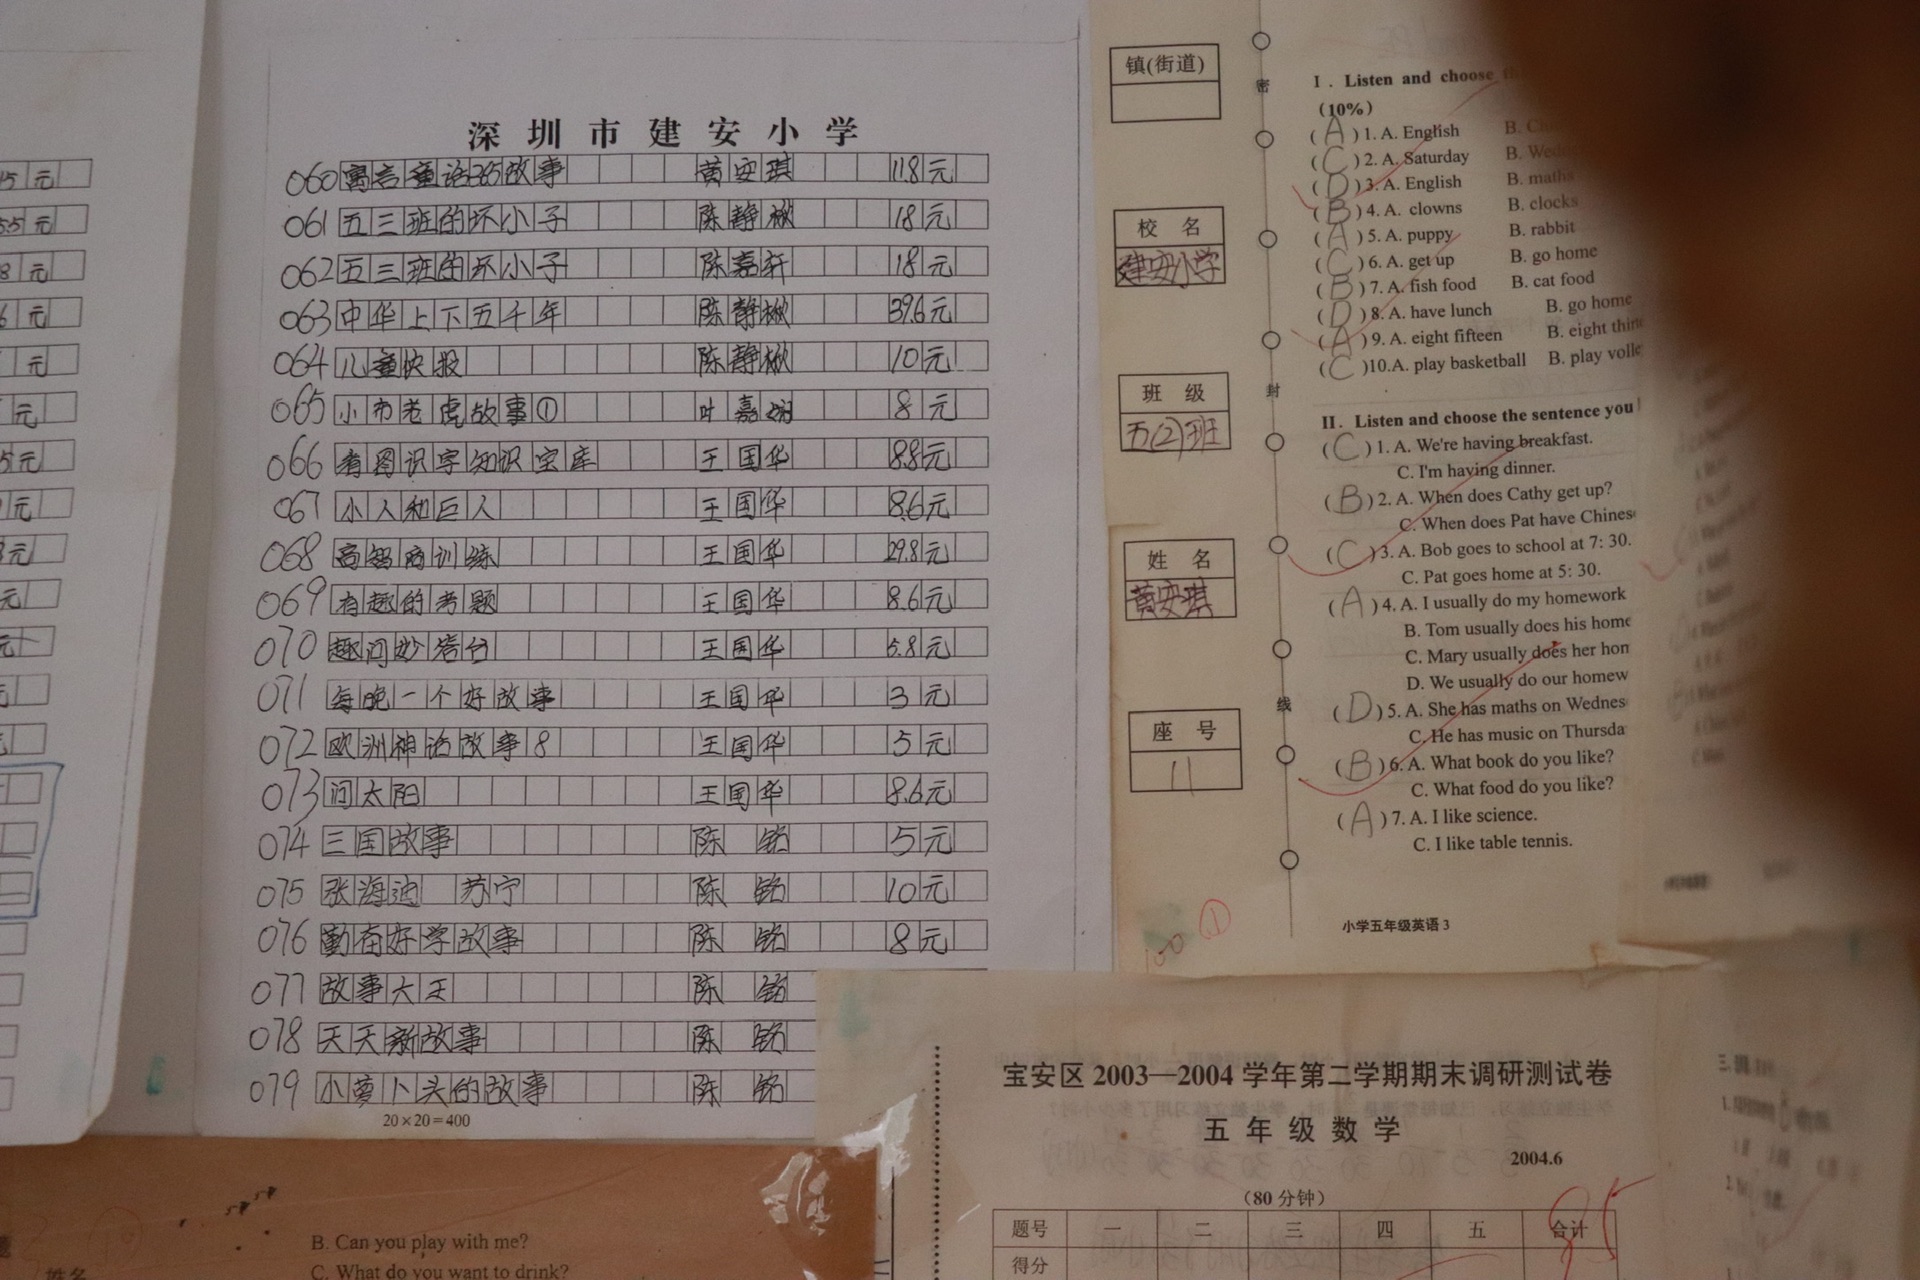 深圳市建安小学
060 寓言童话365故事 黄安琪 11.8元
061 五三班的坏小子 陈静楸 18元
062 五三班的坏小子 陈嘉轩 18元
063 中华上下五千年 陈静楸 39.6元
064 儿童快报 陈静楸 10元
065 小布老虎故事① 叶嘉 8元
066 看图识字知识宝库 王国华 8.8元
067 小人和巨人 王国华 8.6元
068 高智商训练 王国华 29.8元
069 有趣的考题 王国华 8.6元
070 趣问妙答台 王国华 5.8元
071 每晚一个好故事 王国华 3元
072 欧洲神话故事8 王国华 5元
073 问太阳 王国华 8.6元
074 三国故事 陈铭 5元
075 张海迪 苏宁 陈铭 10元
076 勤奋好学故事 陈铭 8元
077 故事大王 陈铭
078 天天新故事 陈铭
079 小萝卜头的故事 陈铭
20×20=400
15元
5.5元
8元
6元
元
元
5元
元
元
元
元
镇(街道)
校名
建安小学
班级
五(2)班
姓名
黄安琪
座号
11
密
封
线
I . Listen and choose
(10%)
(A)1. A. English
(C)2. A. Saturday
(D)3. A. English B. maths
(B)4. A. clowns B. clocks
(A)5. A. puppy B. rabbit
(C)6. A. get up B. go home
(B)7. A. fish food B. cat food
(D)8. A. have lunch B. go home
(A)9. A. eight fifteen B. eight
(C)10.A. play basketball B. play
II. Listen and choose the sentence you
(C)1. A. We're having breakfast.
C. I'm having dinner.
(B)2. A. When does Cathy get up?
C. When does Pat have Chines
(C)3. A. Bob goes to school at 7: 30.
C. Pat goes home at 5: 30.
(A)4. A. I usually do my homework
B. Tom usually does his
C. Mary usually does her
D. We usually do our
(D)5. A. She has maths on Wednes
C. He has music on Thursda
(B)6. A. What book do you like?
C. What food do you like?
(A)7. A. I like science.
C. I like table tennis.
小学五年级英语 3
100 ①
宝安区2003—2004学年第二学期期末调研测试卷
五年级数学
2004.6
(80分钟)
题号 一 二 三 四 五 合计
得分
85
B. Can you play with me?
C. What do you want to drink?
姓名